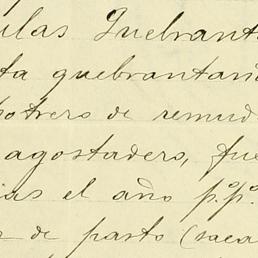 ulas Quebrant
ta quebrantaño
potrero de remud
agostadero, fue
ias el año p.º p.º
r de pasto (saca